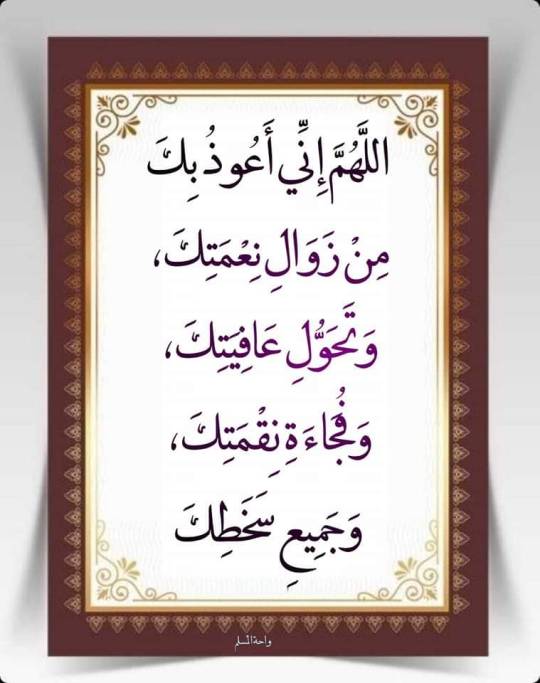 اللَّهُمَّ إِنِّي أَعُوذُ بِكَ
مِنْ زَوَالِ نِعْمَتِكَ،
وَتَحَوُّلِ عَافِيَتِكَ،
وَفُجَاءَةِ نِقْمَتِكَ،
وَجَمِيعِ سَخَطِكَ
واحة المسلم